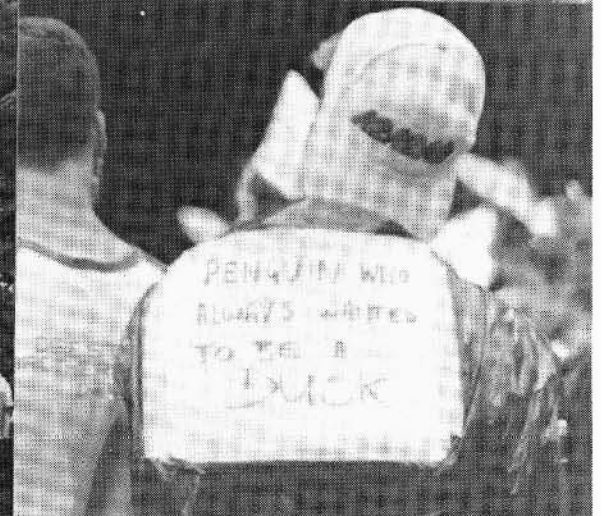 PENGUIN WHO
ALWAYS WANTED
TO BE A
DUCK